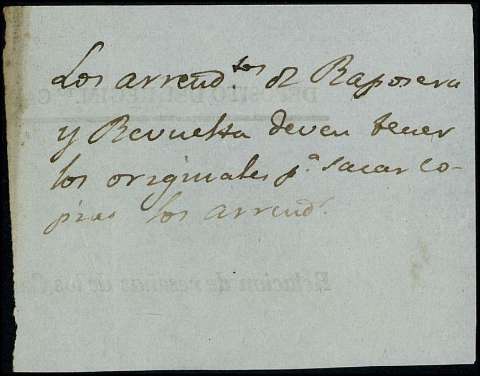 Los arrend.tos de Raposera
y Revuelta deven tener
los originales p.a sacar co-
pias los arrend.s